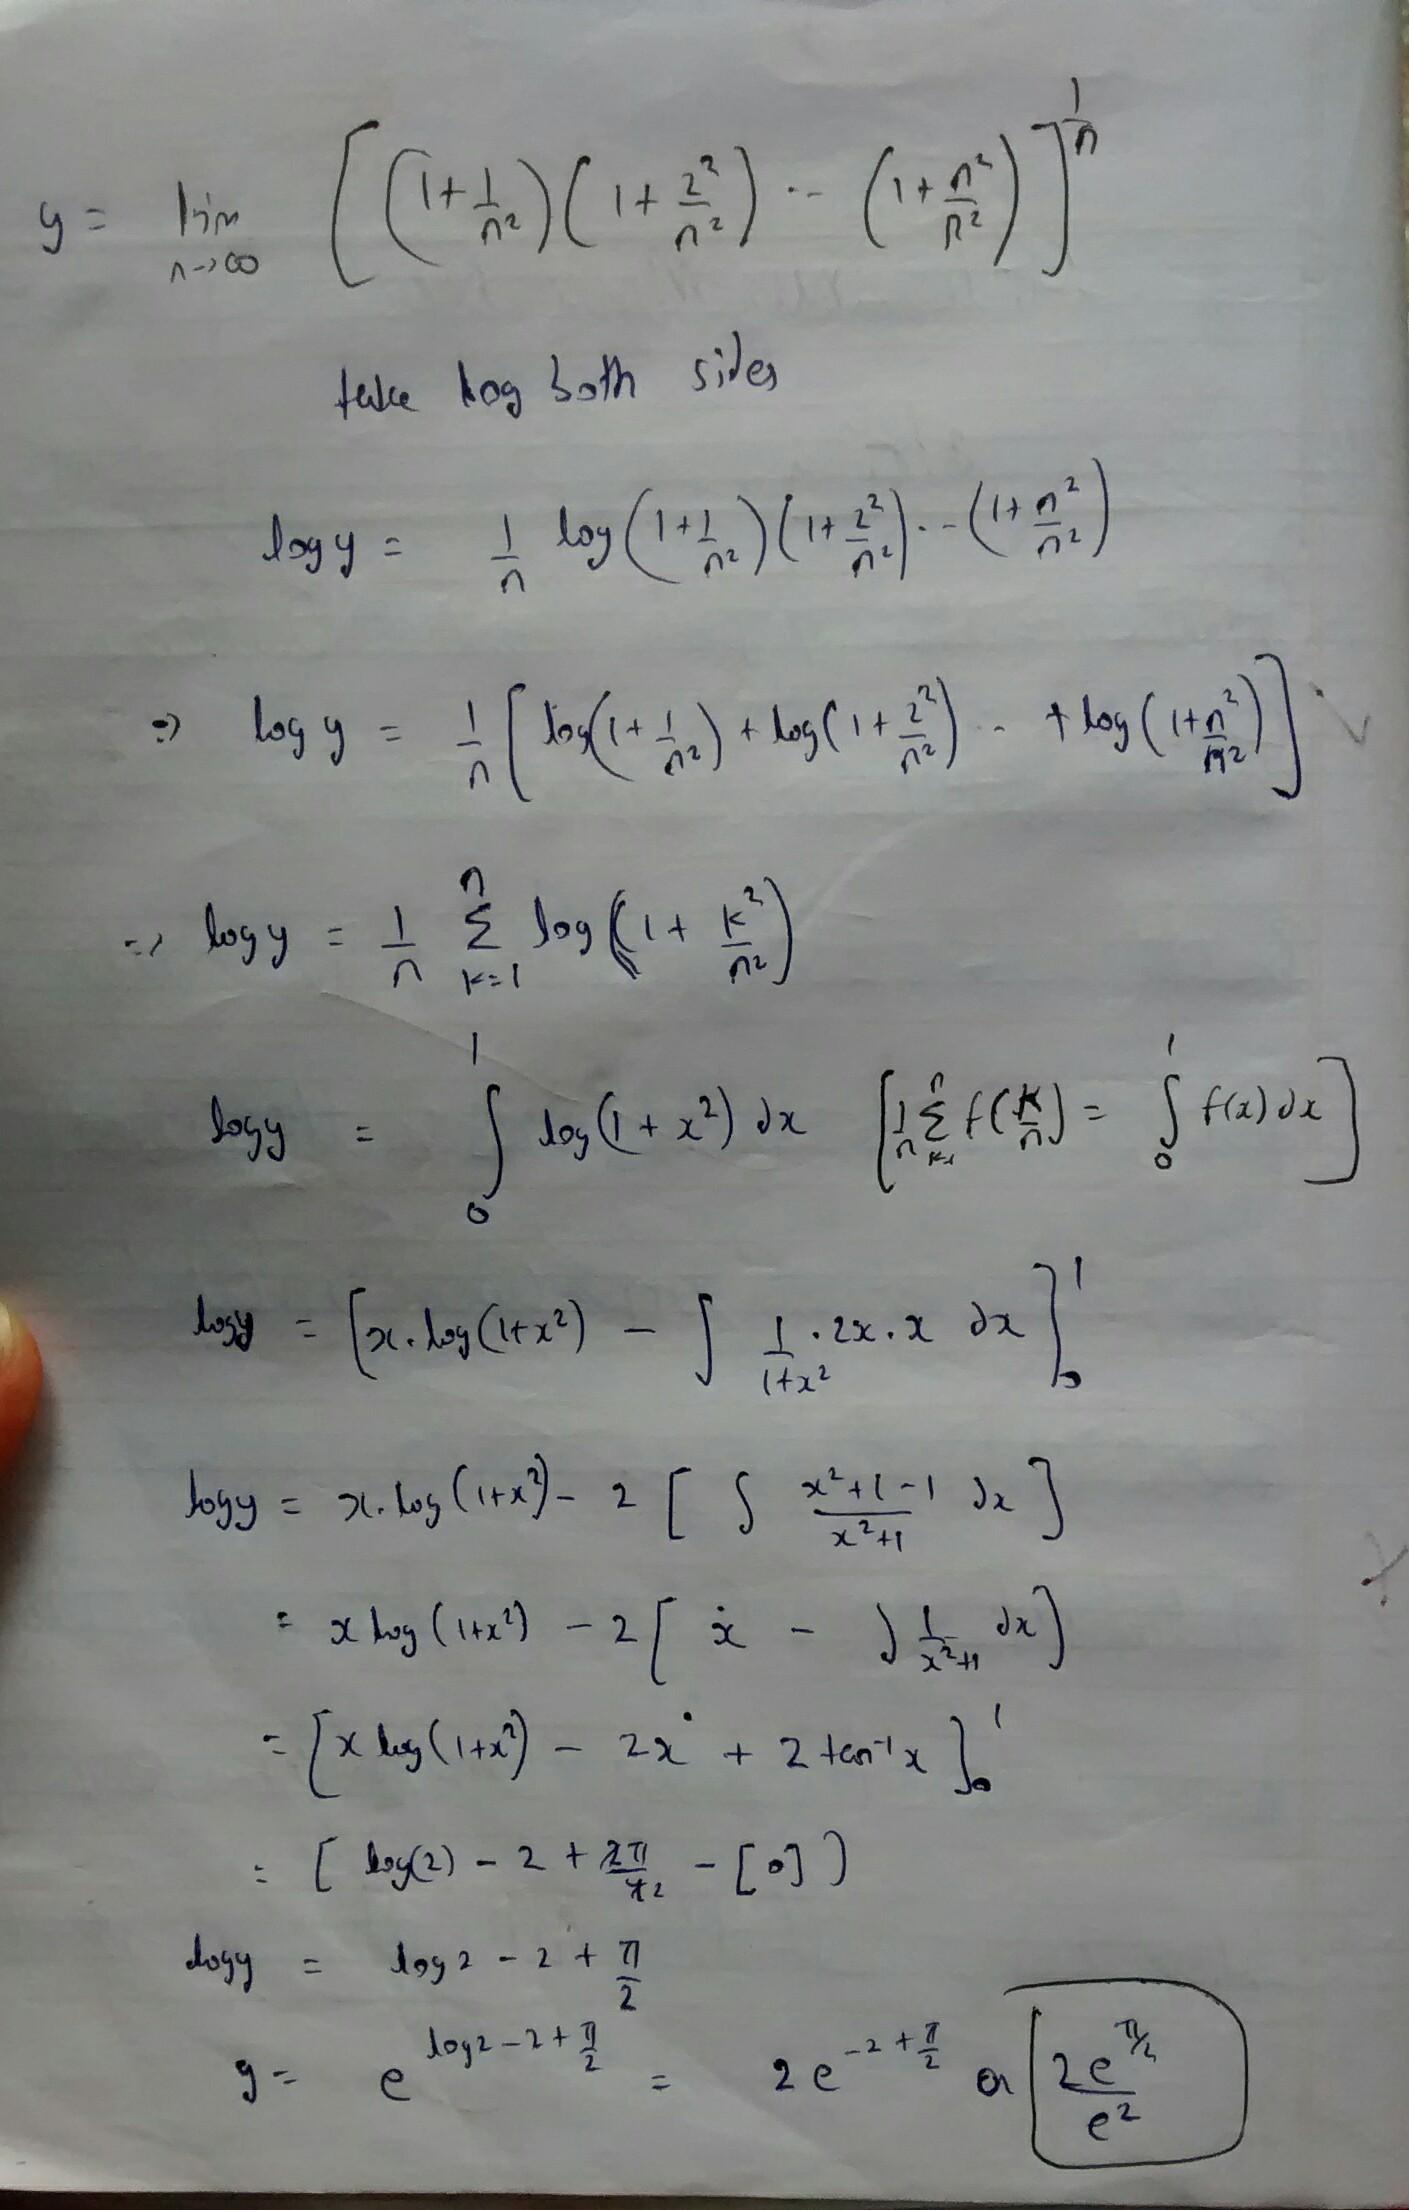 y = lim n→∞ [(1+1/n²)(1+2²/n²) -- (1+n²/n²)]^(1/n)
take log both sides
log y = 1/n log(1+1/n²)(1+2²/n²)--(1+n²/n²)
⇒ log y = 1/n [log(1+1/n²) + log(1+2²/n²) -- + log(1+n²/n²)]
⇒ log y = 1/n Σ_{k=1}^{n} log(1+k²/n²)
log y = ∫_0^1 log(1+x²) dx [1/n Σ_{k=1}^{n} f(k/n) = ∫_0^1 f(x) dx]
log y = [x.log(1+x²) − ∫ 1/(1+x²) · 2x.x dx]_0^1
log y = x.log(1+x²) − 2[∫ (x²+1−1)/(x²+1) dx]
= x log(1+x²) − 2[x − ∫ 1/(x²+1) dx]
= [x log(1+x²) − 2x + 2 tan⁻¹x]_0^1
= [log(2) − 2 + π/2 − [0]]
log y = log 2 − 2 + π/2
y = e^(log2−2+π/2) = 2e^(−2+π/2) or 2e^(π/2)/e²